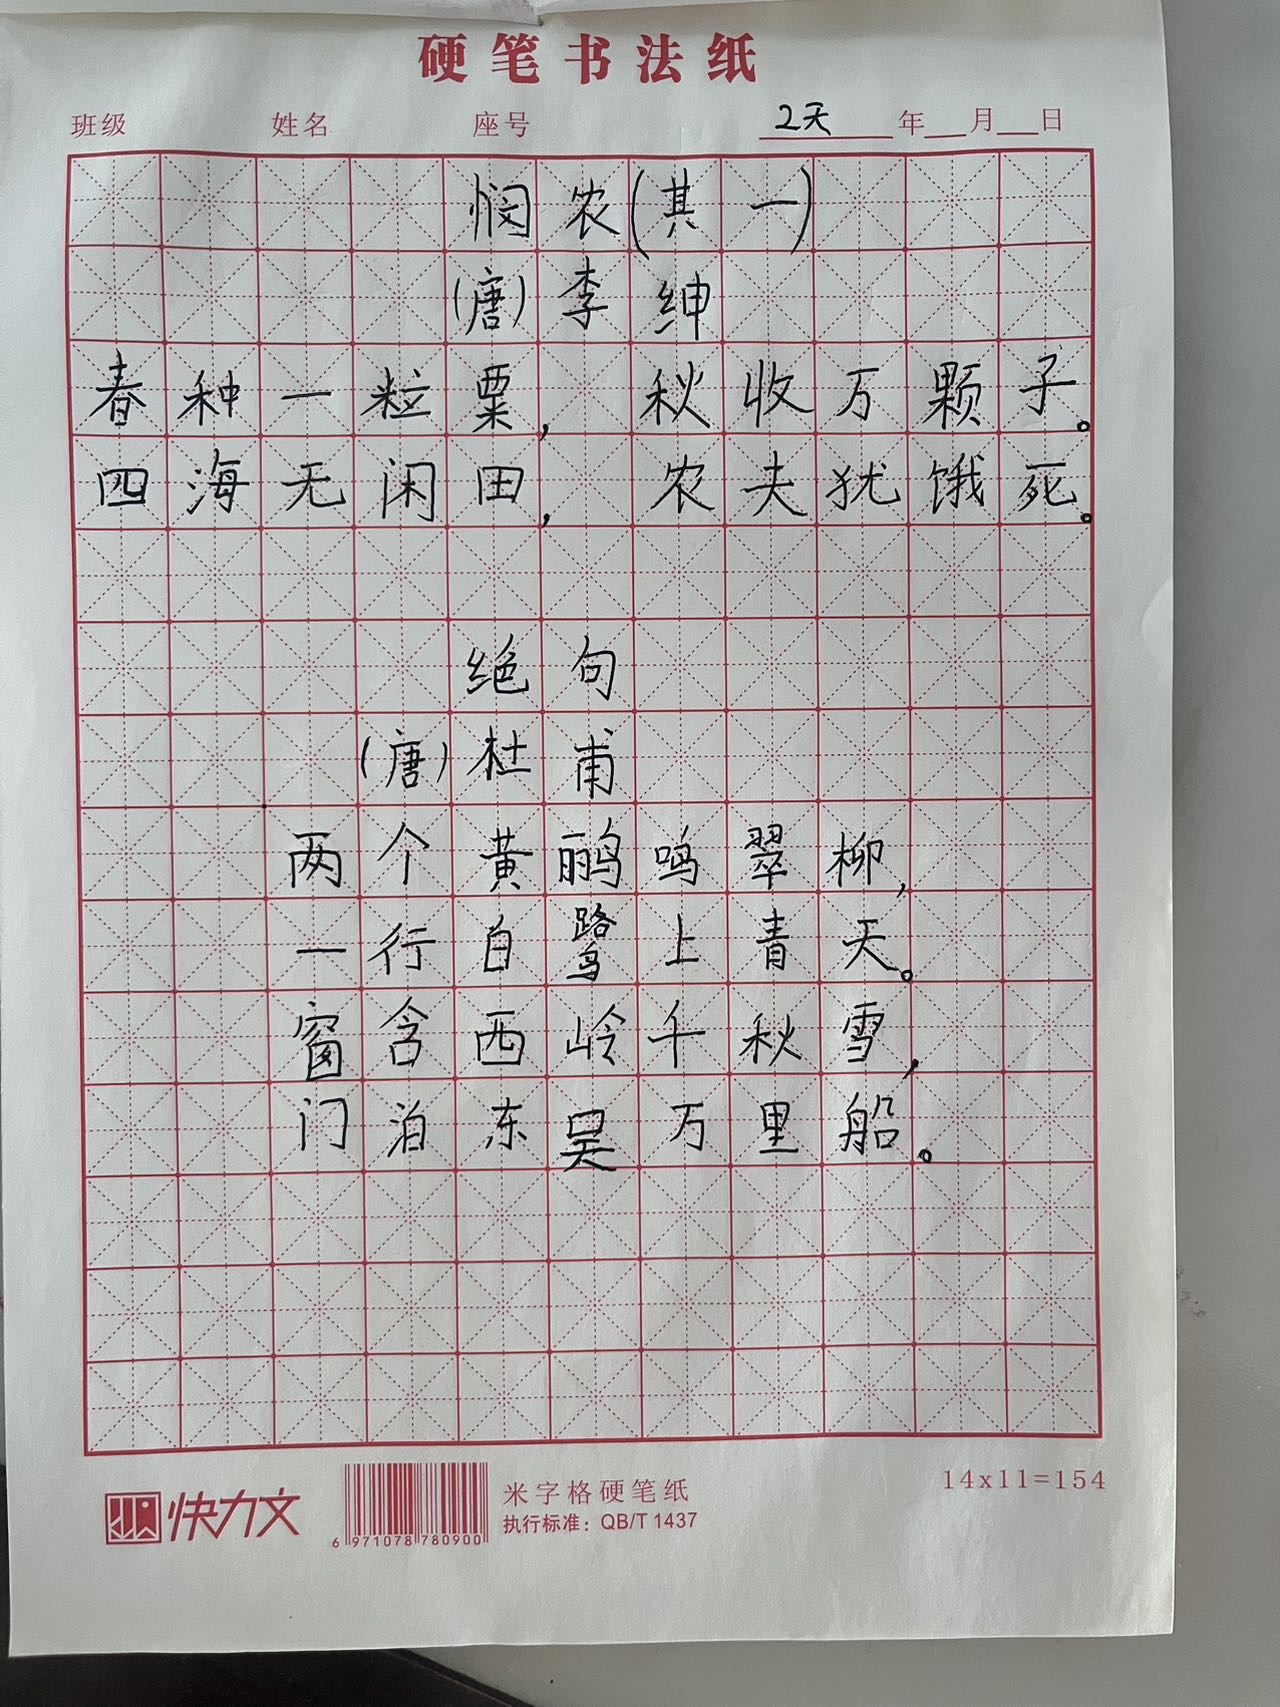 硬笔书法纸
班级 姓名 座号 2天 年 月 日
悯农(其一)
(唐)李绅
春种一粒粟,秋收万颗子。
四海无闲田,农夫犹饿死。
绝句
(唐)杜甫
两个黄鹂鸣翠柳,
一行白鹭上青天。
窗含西岭千秋雪,
门泊东吴万里船。
快力文
6 971078 780900
米字格硬笔纸
执行标准:QB/T 1437
14x11=154